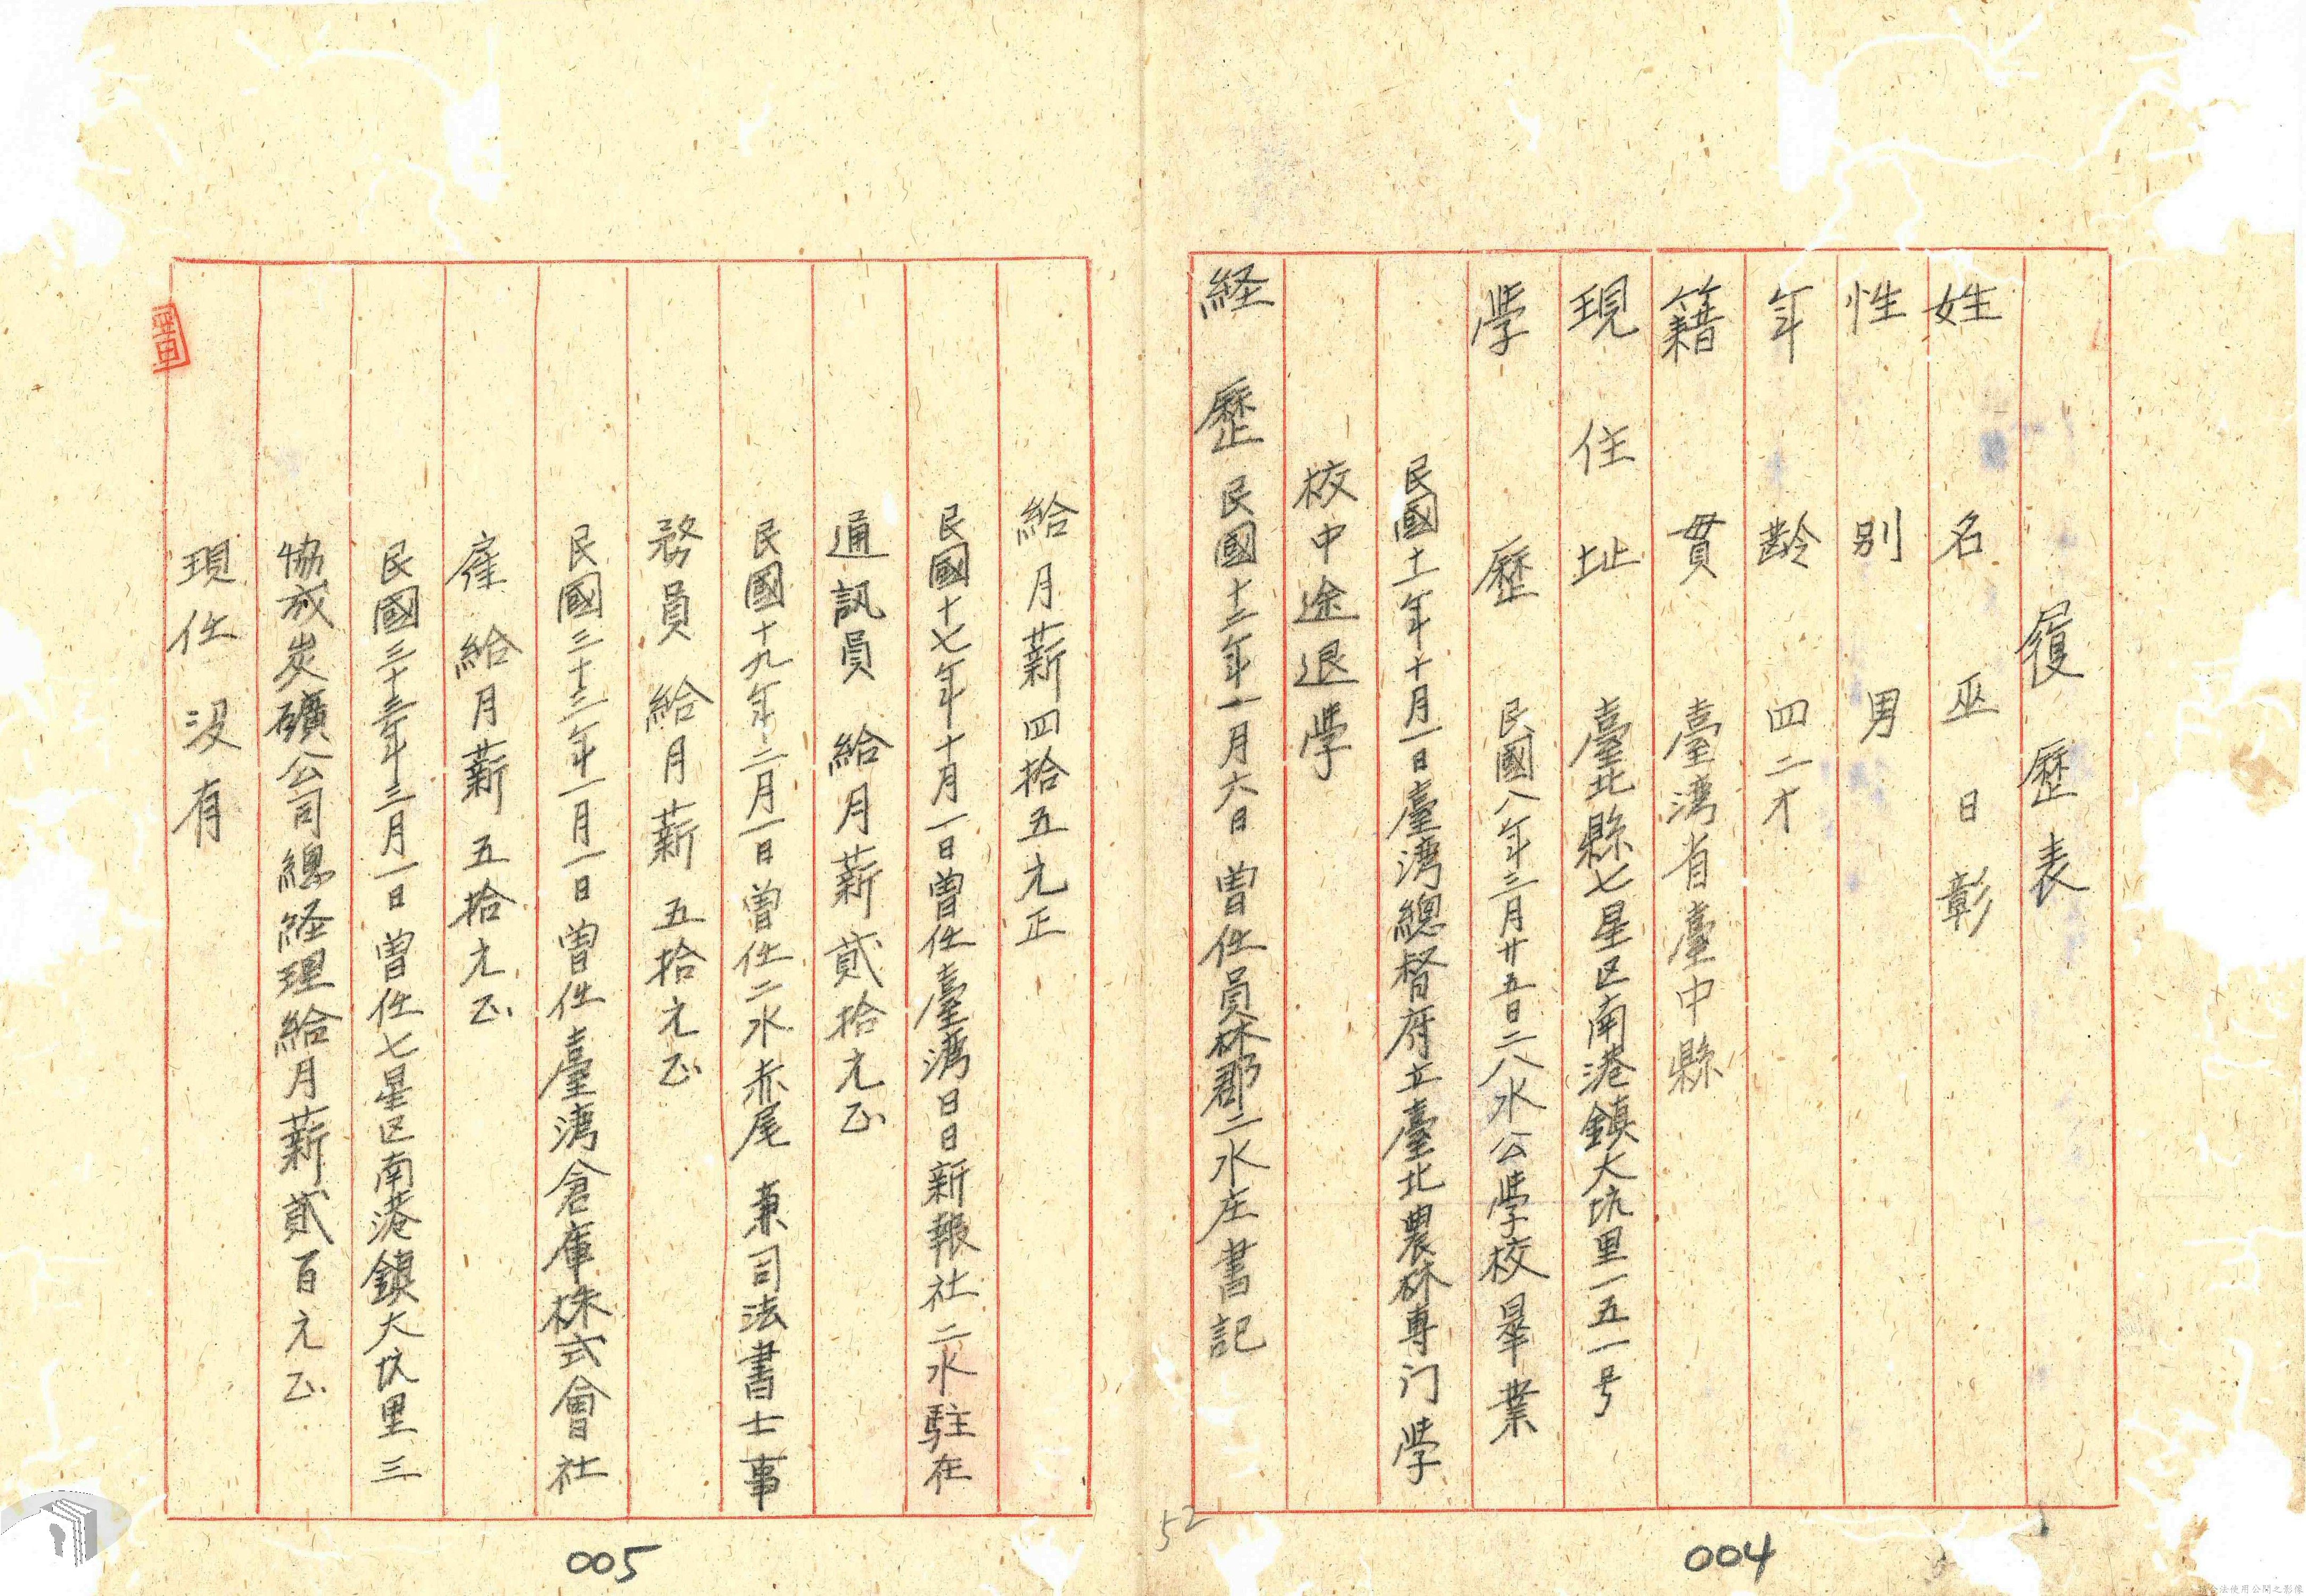 履歷表
姓名 巫日彰
性別 男
年齡 四二才
籍貫 臺湾省臺中縣
現住址 臺北縣七星区南港鎮大坑里一五一号
學歷 民國八年三月廿五日二八水公學校畢業
民國十一年十月一日臺湾總督府立臺北農林專门學
校中途退學
経歷 民國十三年一月六日 曽任員林郡二水庄書記
給月薪四拾五元正
民國十七年十月一日曽任臺湾日日新報社二水駐在
通訊員 給月薪貳拾元正
民國十九年二月一日曽任二水赤尾 兼司法書士事
務員 給月薪 五拾元正
民國三十三年一月一日曽任臺湾倉庫株式會社
雇 給月薪 五拾元正
民國三十三年三月一日曽任七星区南港鎮大坑里三
協成炭礦公司總経理給月薪貳百元正
現任 没有
52
004
005